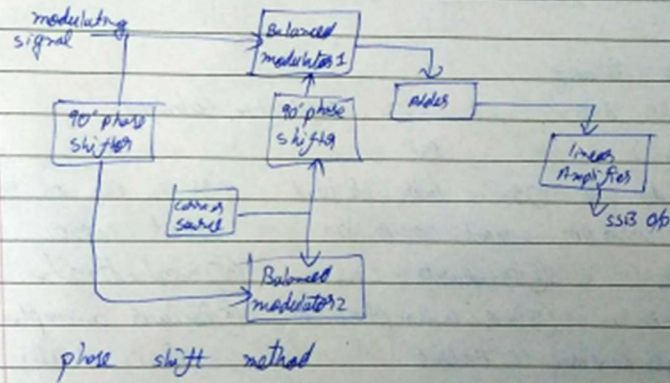 modulating
signal
Balanced
modulator 1
Adder
90° phase
shifter
90° phase
shifter
linear
Amplifier
SSB O/p
carrier
source
Balanced
modulator 2
phase shift method